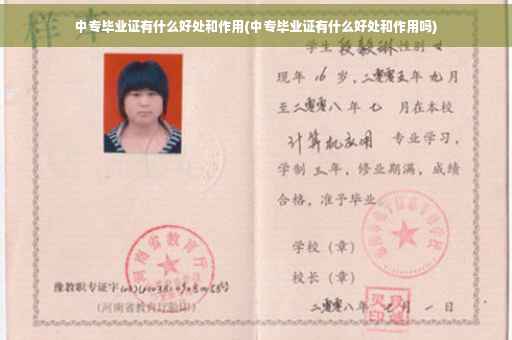 中专毕业证有什么好处和作用(中专毕业证有什么好处和作用吗)
样本
学生段毅琳性别女
现年16岁，二零零五年九月
至二零零八年七月在本校
计算机应用 专业学习，
学制三年，修业期满，成绩
合格，准予毕业
学校（章）
校长（章）
二零零八年七月一日
河南省教育厅
豫教职专证字
(河南省教育厅验印)